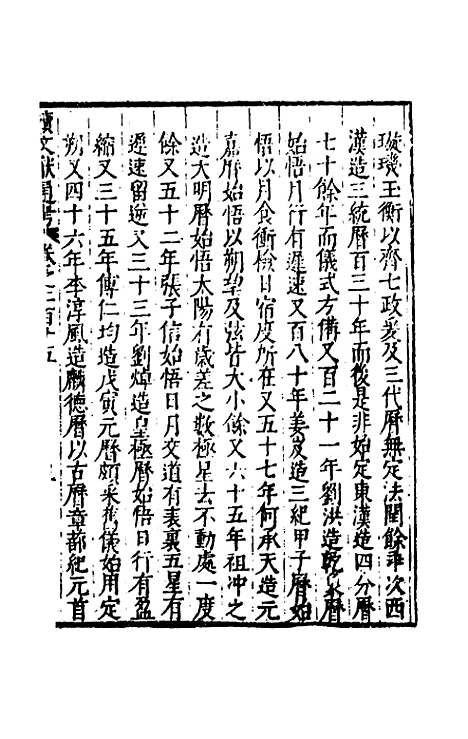 璇璣玉衡以齊七政爰及三代曆無定法閏餘乖次西
漢造三統曆百三十年而後是非始定東漢造四分曆
七十餘年而儀式方備又百二十一年劉洪造乾象曆
始悟月行有遲速又百八十年姜岌造三紀甲子曆始
悟以月食衝檢日宿度所在又五十七年何承天造元
嘉曆始悟以朔望及弦皆大小餘又六十五年祖冲之
造大明曆始悟太陽有歲差之數極星去不動處一度
餘又五十二年張子信始悟日月交道有表裏五星有
遲速留逆又三十三年劉焯造皇極曆始悟日行有盈
縮又三十五年傅仁均造戊寅元曆頗采舊儀始用定
朔又四十六年李淳風造麟德曆以古曆章蔀紀元首
續文獻通考 卷之二百十五